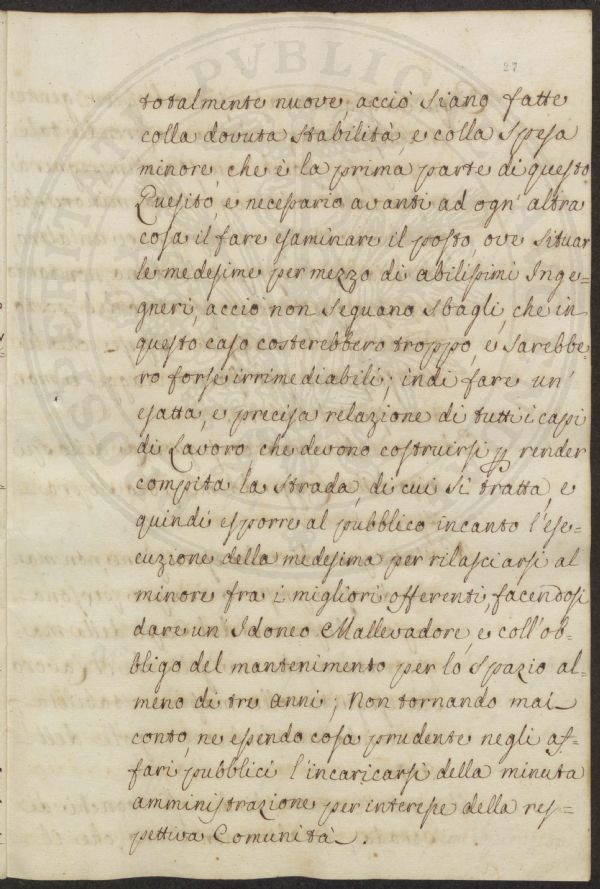 27
totalmente nuove acciò siano fatte
colla dovuta stabilità, e colla spesa
minore, che è la prima parte di questo
Quesito, è necessario avanti ad ogn' altra
cosa il fare esaminare il posto ove situar
le medesime per mezzo di abilissimi Inge=
gneri, acciò non seguano sbagli, che in
questo caso costerebbero troppo, e sarebbe=
ro forse irrimediabili; indi fare un'
esatta, e precisa relazione di tutti i capi
di Lavoro che devono costruirsi p render
compita la strada, di cui si tratta, e
quindi esporre al pubblico incanto l'ese=
cuzione della medesima per rilasciarsi al
minore fra i migliori offerenti, facendosi
dare un' Idoneo Mallevadore, e coll'ob=
bligo del mantenimento per lo spazio al=
meno di tre anni; Non tornando mai
conto, ne essendo cosa prudente negli af=
fari pubblici l'incaricarsi della minuta
amministrazione per interesse della res=
pettiva Comunità.
PVBLICA